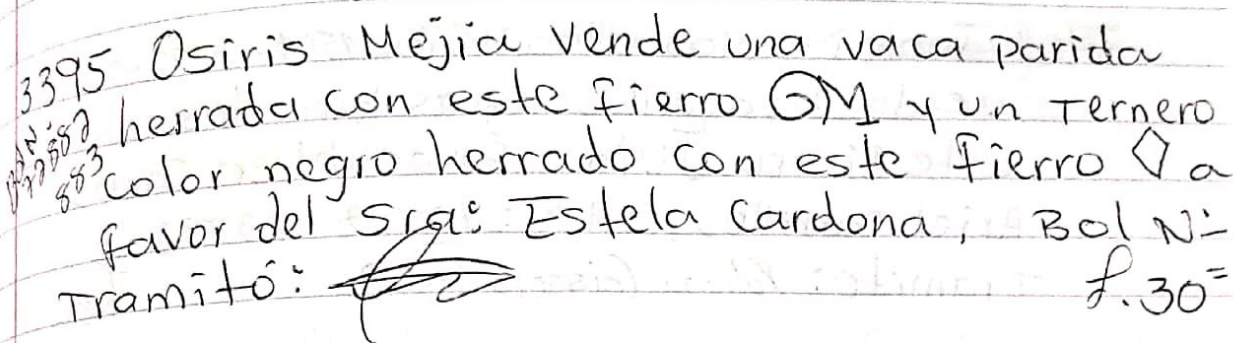 3395 Osiris Mejia vende una vaca parida
herrada con este fierro OM y un Ternero
883 color negro herrado con este fierro a
favor del Sra: Estela Cardona, Bol Nº
Tramitó: f.30=